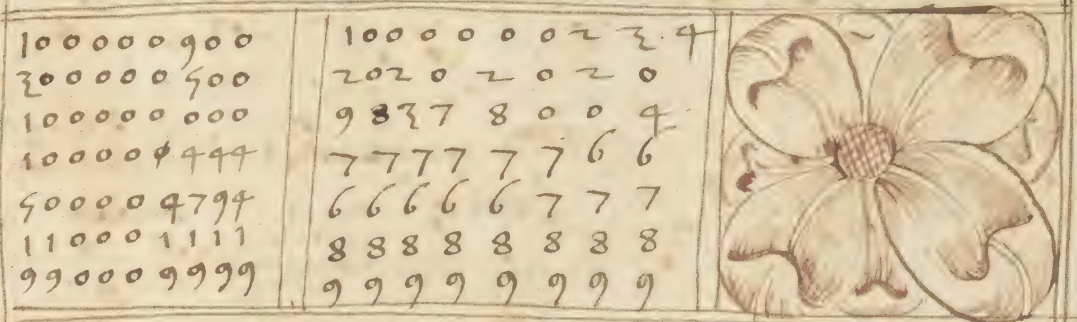 100000900
300000500
100000000
100000444
500004794
110001111
990009999
100000023.4
20202020
98378004
77777766
66666777
88888888
99999999